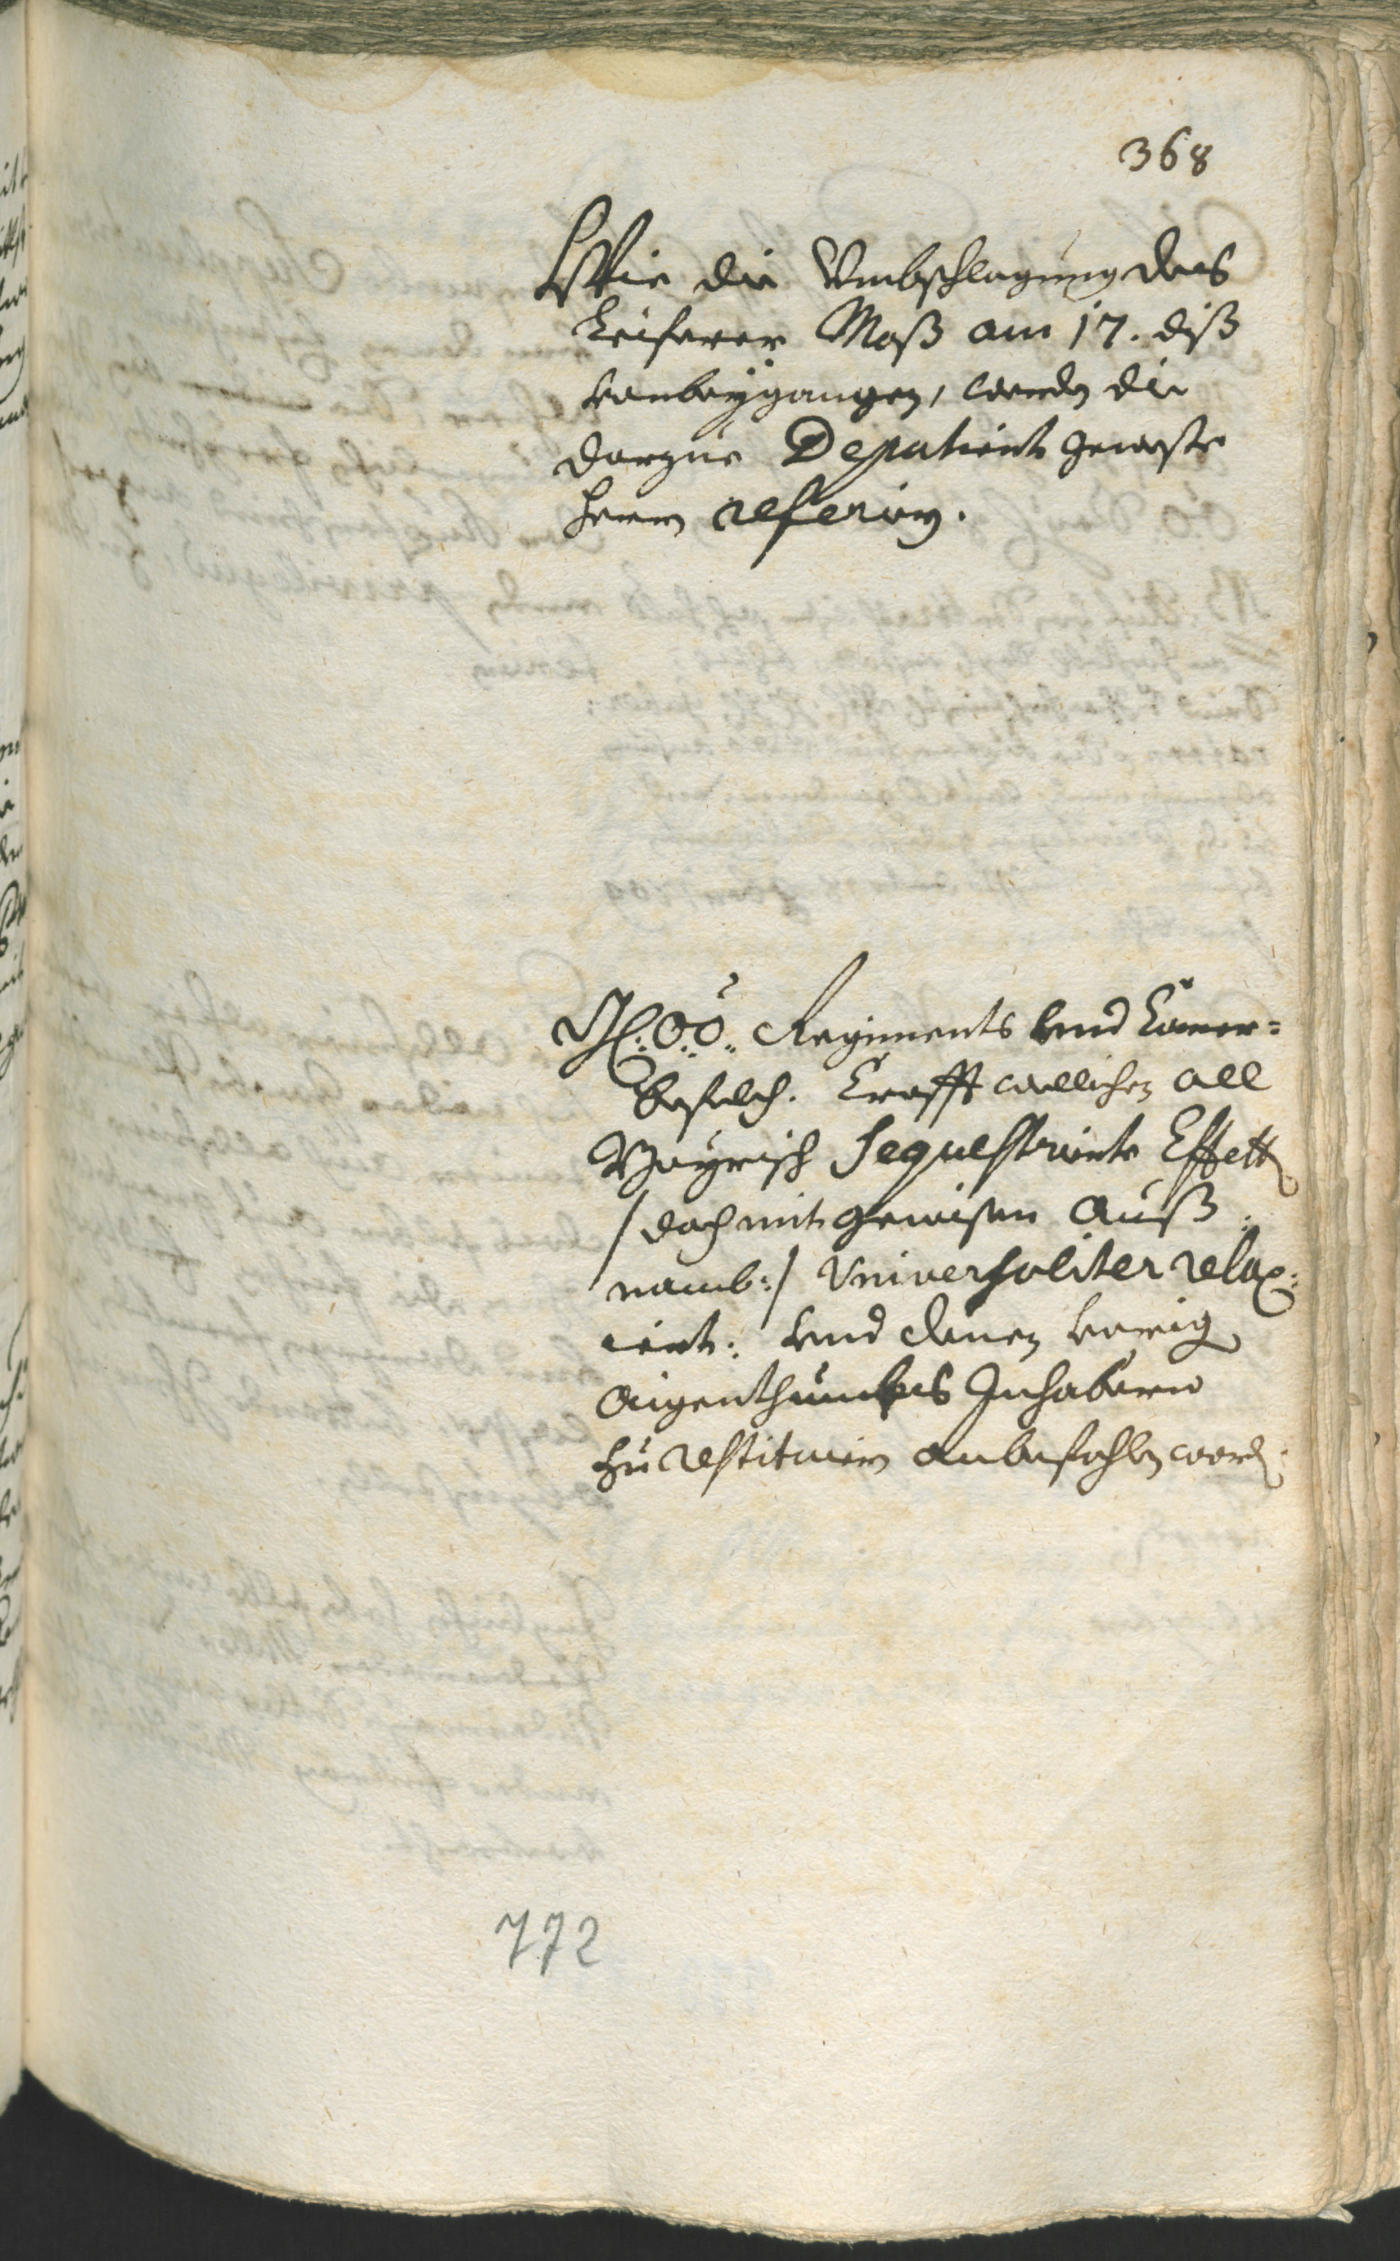 368
Wie die Umbschlagung des
Leiferer Moß am 17. diß
vorbeygangen, werden die
darzue Deputiert geweste
herrn referirn.
O:Ö: Regiments und Camer-
befelch. Crafft welliches all
Bayrisch sequestrierte Effett
/ doch mit gewisen Auß-
namb: / Universaliter relax-
iert: und denen vorig
aigenthumbs Inhabern
zu restituiern anbefohlen word.
772